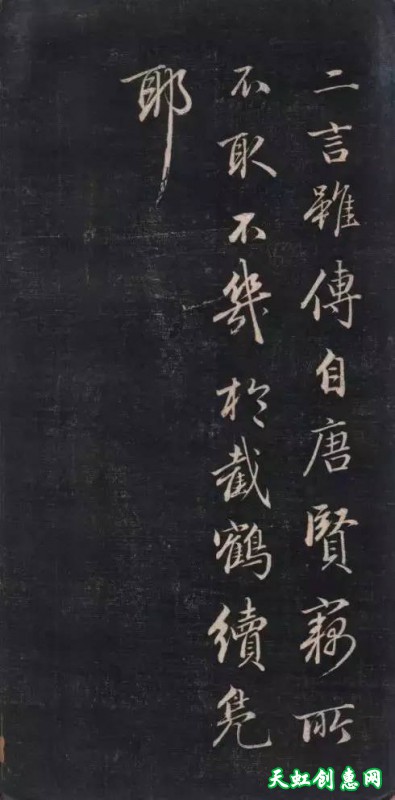 二言雖傳自唐賢竊所
不取不幾於截鶴續鳧
耶
天虹创惠网